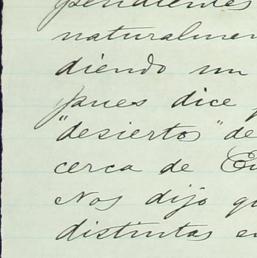 pendientes
naturalmen
diendo un
pues dice
"desierto" de
cerca de
Nos dijo q
distintas e